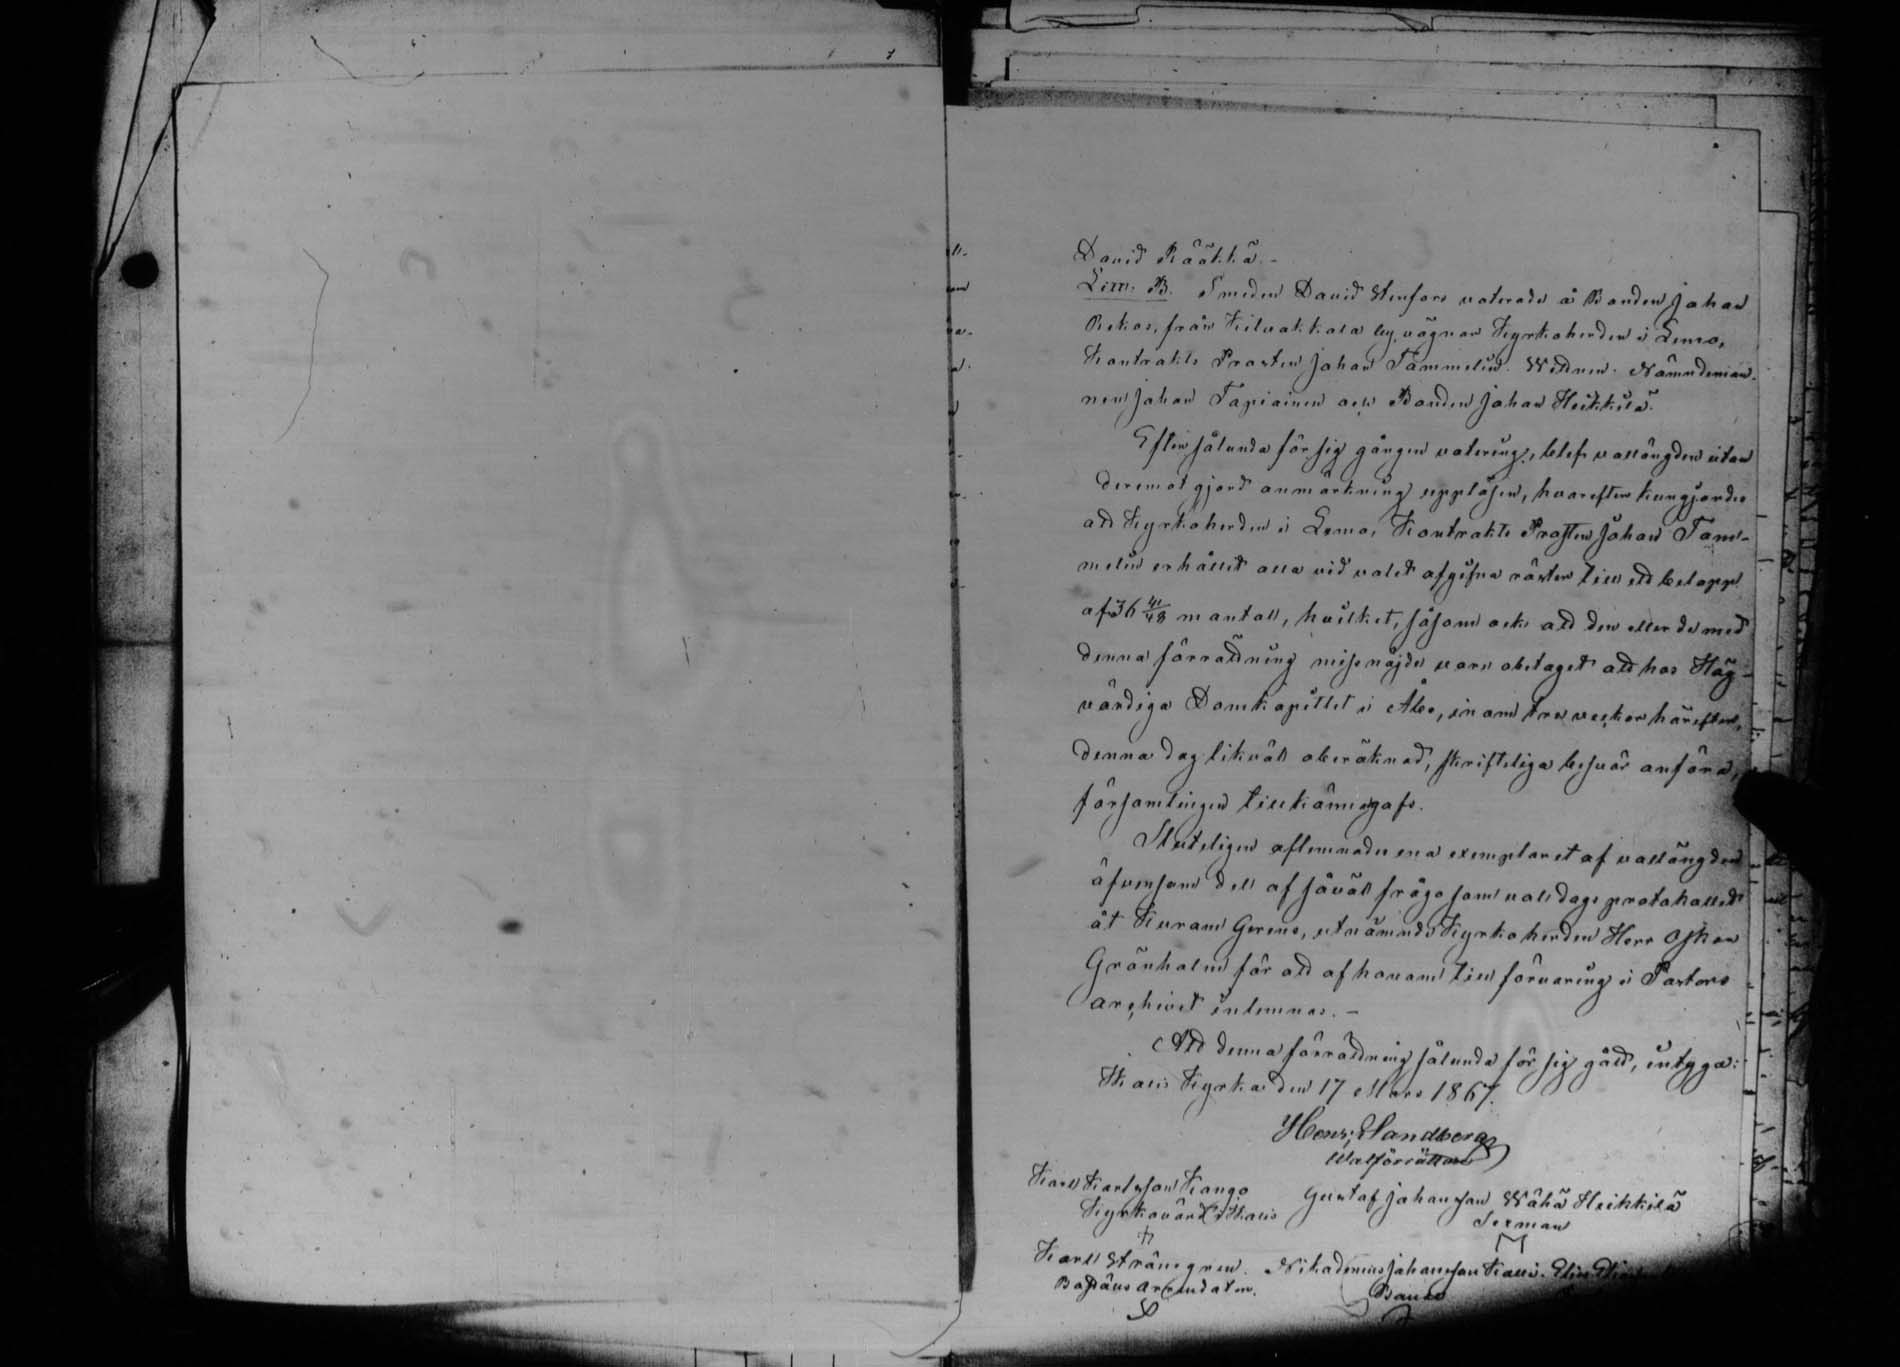 David Räökkä.-
Litt. B. Smeden David Stenfors voterade å Bonden Johan
Rekos, från Kilvakkala by, vägnar Kyrkoherden i Lemo,
Kontrakts Prosten Johan Tammelin. Wittnen. Nämndeman-
nen Johan Tapiainen och Bonden Johan Heikkilä.
Efter sålunda för sig gången votering, blef vallängden utan
deremot gjord anmärkning uppläsen, hvarefter kungjordes
att Kyrkoherden i Lemo, Kontrakts Prosten Johan Tam-
melin erhållit alla vid valet afgifna röster till ett belopp
af 36 41/48 mantall, hvilket, såsom ock att den eller de med
denna förrättning missnöjde vore obetaget att hos Hög-
vördiga Domkapitlet i Åbo, inom tre veckor härefter,
denna dag likväll oberäknad, skrifteliga besvär anföra,
församlingen tillkännagafs.
Sluteligen aflemnades ena exemplaret af vallängden
äfvensom dell af såväll frågo som valdags protokollet
åt Kuram Gerens, utnämnde Kyrkoherden Herr Oskar
Grönholm för att af honom till förvaring i Pastors
archivet inlemnas. -
Att denna förrättning sålunda för sig gått, intyga:
Ikalis Kyrka den 17 Mars 1867.
Henr: Sandberg
Walförrättare
Karl Karlsson Kango
Kyrkovärd i Ikalis
Gustaf Johansson Wähä Heikkilä
Sexman
Karl Strömgren.
Boställs Arrendator.
Nikodemus Johansson Kalli.
Bonde
Elias